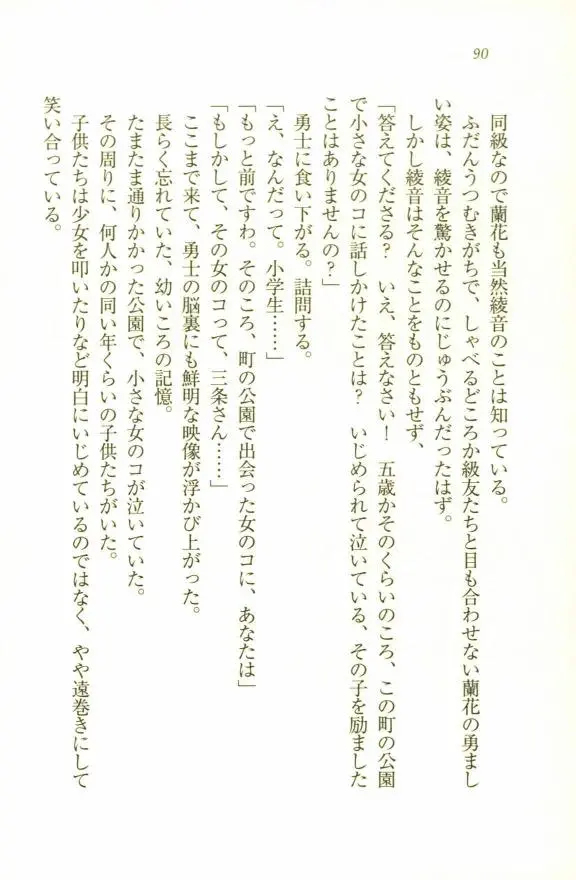 90
同級なので蘭花も当然綾音のことは知っている。
ふだんうつむきがちで、しゃべるどころか級友たちと目も合わせない蘭花の勇まし
い姿は、綾音を驚かせるのにじゅうぶんだったはず。
しかし綾音はそんなことをものともせず、
「答えてくださる？　いえ、答えなさい！　五歳かそのくらいのころ、この町の公園
で小さな女のコに話しかけたことは？　いじめられて泣いている、その子を励ました
ことはありませんの？」
勇士に食い下がる。詰問する。
「え、なんだって。小学生……」
「もっと前ですわ。そのころ、町の公園で出会った女のコに、あなたは」
「もしかして、その女のコって、三条さん……」
ここまで来て、勇士の脳裏にも鮮明な映像が浮かび上がった。
長らく忘れていた、幼いころの記憶。
たまたま通りかかった公園で、小さな女のコが泣いていた。
その周りに、何人かの同い年くらいの子供たちがいた。
子供たちは少女を叩いたりなど明白にいじめているのではなく、やや遠巻きにして
笑い合っている。